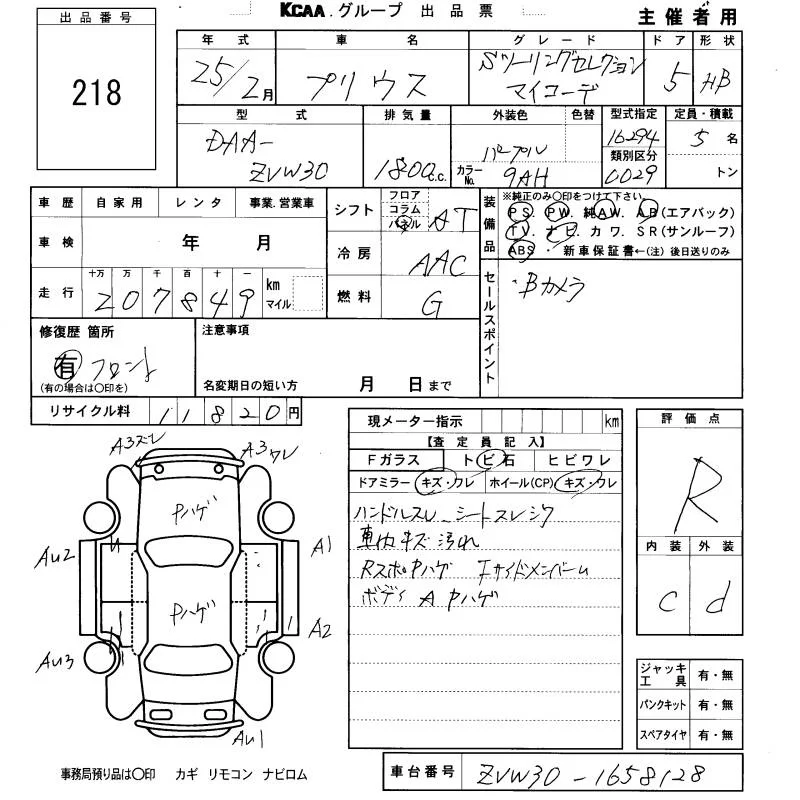 KCAA.グループ 出品票
主催者用
出品番号
218
年式 車名 グレード ドア 形状
25/2月 プリウス Sツーリングセレクション マイコーデ 5 HB
型式 排気量 外装色 色替 型式指定 定員・積載
DAA-ZVW30 1800c.c. パープル 16294 5名
カラーNo. 9AH 類別区分 0029 トン
車歴 自家用 レンタ 事業.営業車
車検 年 月
走行 十万 万 千 百 十 一
207849 km マイル
シフト フロア コラム パネル AT
冷房 AAC
燃料 G
装備品 ※純正のみ○印をつけて下さい
PS. PW. 純AW. AB(エアバック)
TV. ナビ. カワ. SR(サンルーフ)
ABS・新車保証書←(注)後日送りのみ
セールスポイント
・Bカメラ
修復歴 箇所
有 フロント
(有の場合は○印を)
注意事項
名変期日の短い方 月 日まで
リサイクル料 11820円
現メーター指示 km
【査定員記入】
Fガラス トビ石 ヒビワレ
ドアミラー キズ・ワレ ホイール(CP) キズ・ワレ
ハンドルスレ シートスレシワ
車内キズ汚れ
RスポPハゲ エサイドメンバーム
ボディ A Pハゲ
評価点
R
内装 外装
C d
ジャッキ工具 有・無
パンクキット 有・無
スペアタイヤ 有・無
A3スレ
A3ワレ
Pハゲ
AU2
A1
Pハゲ
A2
AU3
AU1
事務局預り品は○印 カギ リモコン ナビロム
車台番号 ZVW30-1658128